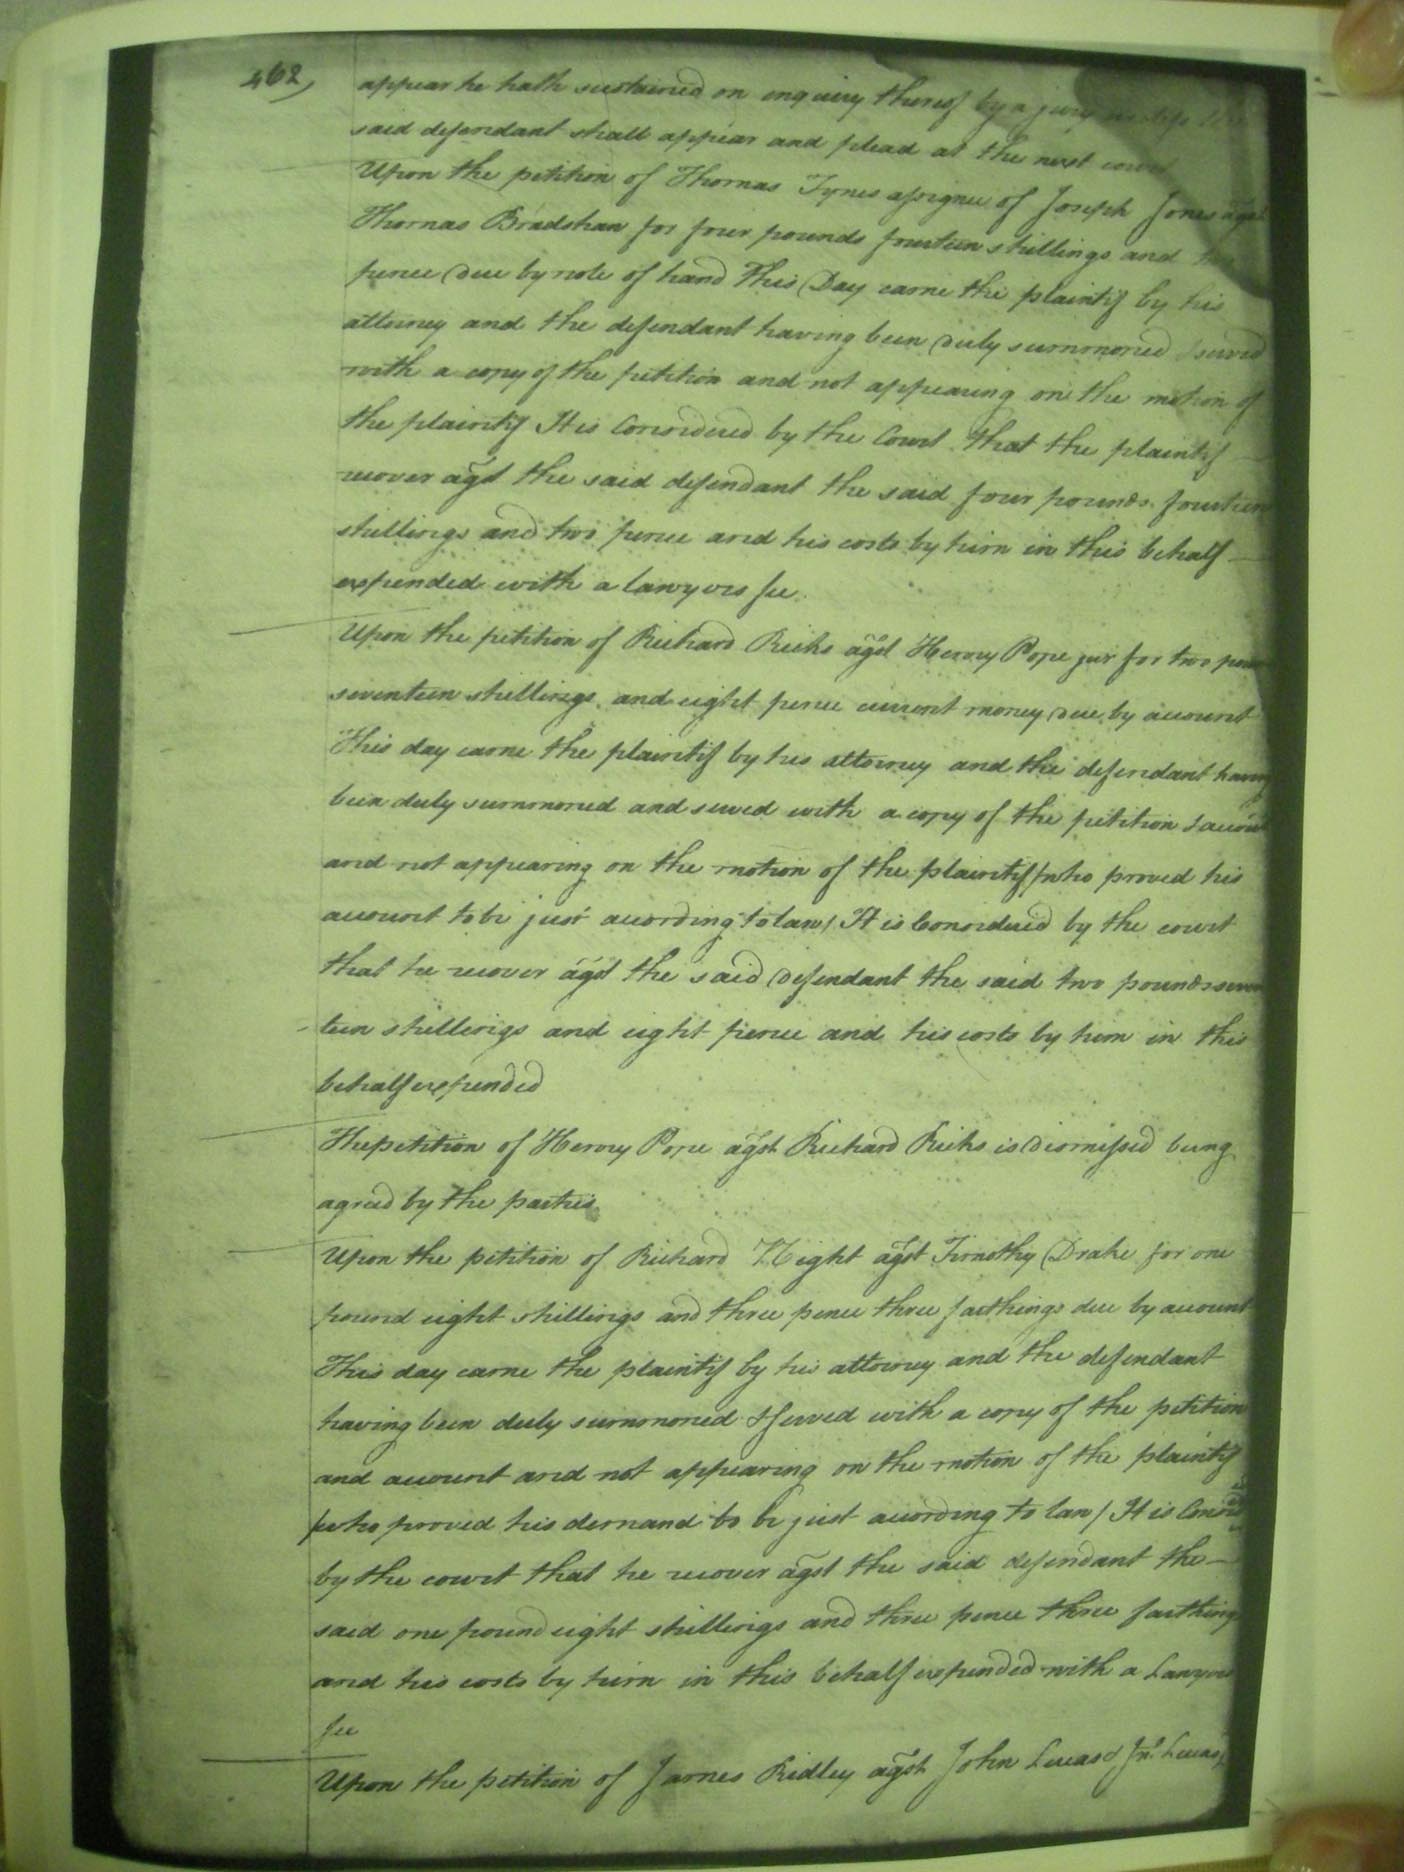 462,
appear he hath sustained on enquiry thereof by a jury unless the
said defendant shall appear and plead at the next court
Upon the petition of Thomas Tynes assignee of Joseph Jones agst
Thomas Bradshaw for four pounds fourteen shillings and two
pence due by note of hand This Day came the plaintif by his
attorney and the defendant having been duly summoned & served
with a copy of the petition and not appearing on the motion of
the plaintif It is Considered by the Court that the plaintif
recover agst the said defendant the said four pounds fourteen
shillings and two pence and his costs by him in this behalf
expended with a lawyers fee.
Upon the petition of Richard Ricks agst Henry Pope jur for two pounds
seventeen shillings and eight pence current money due by account
This day came the plaintif by his attorney and the defendant having
been duly summoned and served with a copy of the petition & account
and not appearing on the motion of the plaintif /who proved his
account to be just according to law/ It is Considered by the court
that he recover agst the said defendant the said two pounds seven
teen shillings and eight pence and his costs by him in this
behalf expended
The petition of Henry Pope agst Richard Ricks is dismissed being
agreed by the parties
Upon the petition of Richard Kight agst Timothy Drake for one
pound eight shillings and three pence three farthings due by account
This day came the plaintif by his attorney and the defendant
having been duly summoned & served with a copy of the petition
and account and not appearing on the motion of the plaintif
/who proved his demand to be just according to law/ It is Considered
by the court that he recover agst the said defendant the
said one pound eight shillings and three pence three farthings
and his costs by him in this behalf expended with a Lawyers
fee
Upon the petition of James Ridley agst John Lucas & Jno. Lucas